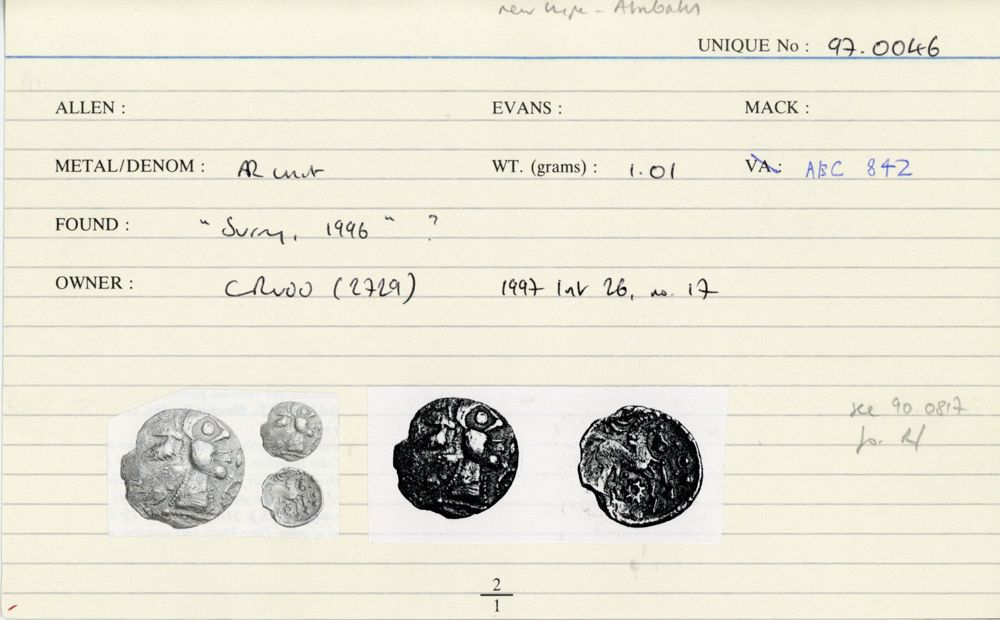 new type - Atrebates
UNIQUE No : 97.0046
ALLEN : EVANS : MACK :
METAL/DENOM : AR unit WT. (grams) : 1.01 VA : ABC 842
FOUND : " Surrey, 1996 " ?
OWNER : CRUOO (2729) 1997 Int 26, no. 17
see 90.0817
for R/
2
1